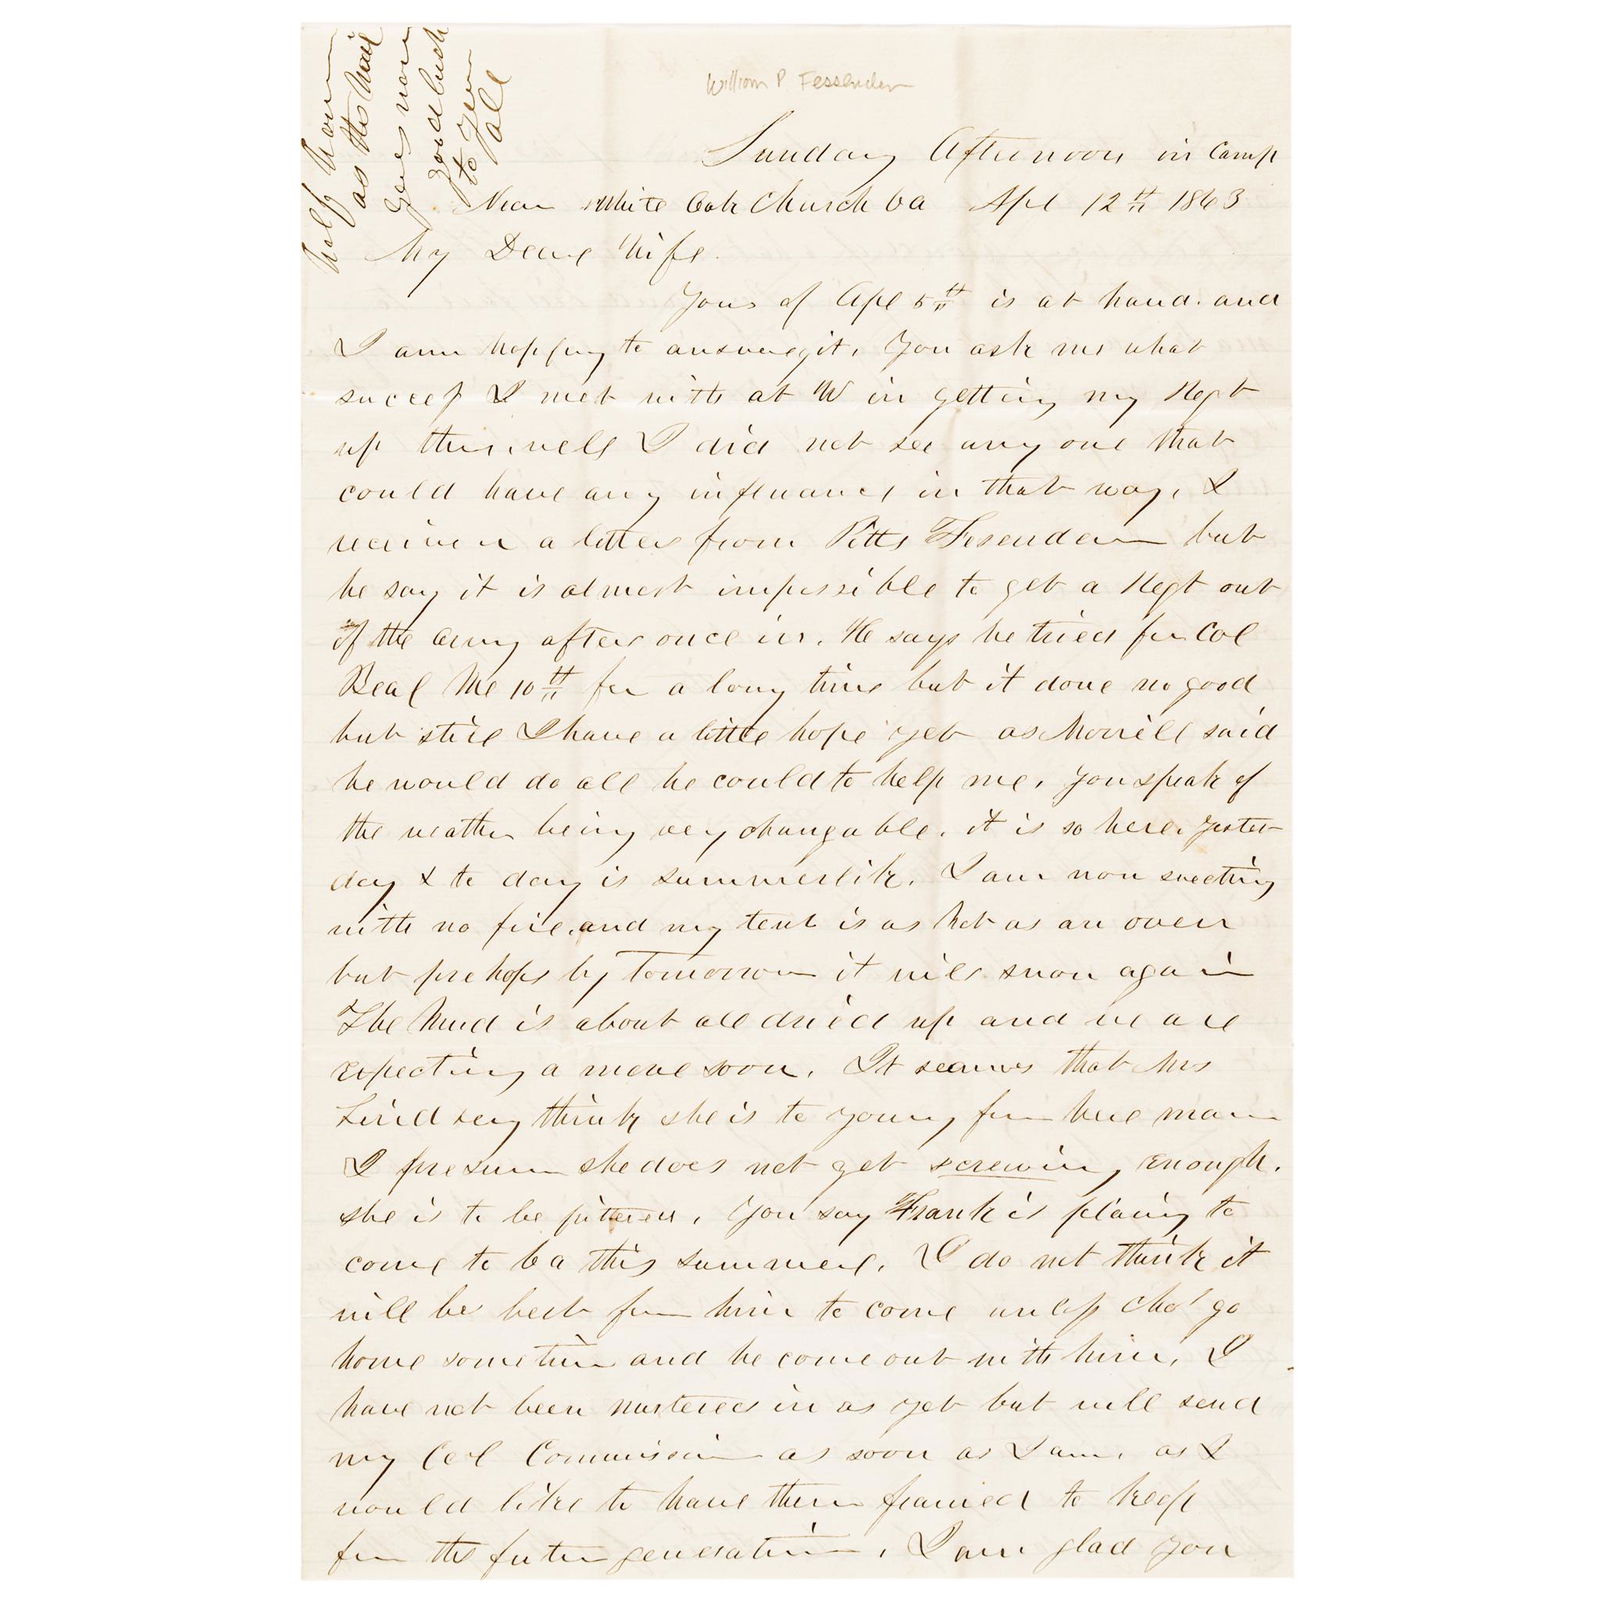 William P Fessenden
half hour
as the Mail
goes now
good luck
to you
all
Sunday Afternoon in Camp
Near White Oak Church Va Apl 12th 1863
My Dear Wife.
Yours of Apl 5th is at hand. and
I am happy to answer it. You ask me what
success I met with at W in getting my Regt
up there, well I did not see any one that
could have any influance in that way, I
received a letter from Pitts Fesenden but
he say it is almost impossible to get a Regt out
of the Army after once in. He says he tried for Col
Beal Me 10th for a long time but it done no good
but still I have a little hope yet as Morrill said
he would do all he could to help me. You speak of
the weather being very changable. it is so here. Yester
day & to day is summerlike. I am now sweating
with no fire, and my tent is as hot as an oven
but prehaps by Tomorrow it will snow again
The Mud is about all dried up and we are
expecting a move soon. It seams that Mrs
Lindsey think she is to young for her man
I presum she does not get screwing enough.
she is to be pittied. You say Frank is planing to
come to Va this summer. I do not think it
will be best for him to come unless Chas go
home sometime and he come out with him, I
have not been mustered in as yet but will send
my Col Commission as soon as I am. as I
would like to have them framed to keep
for the future generation. I am glad you